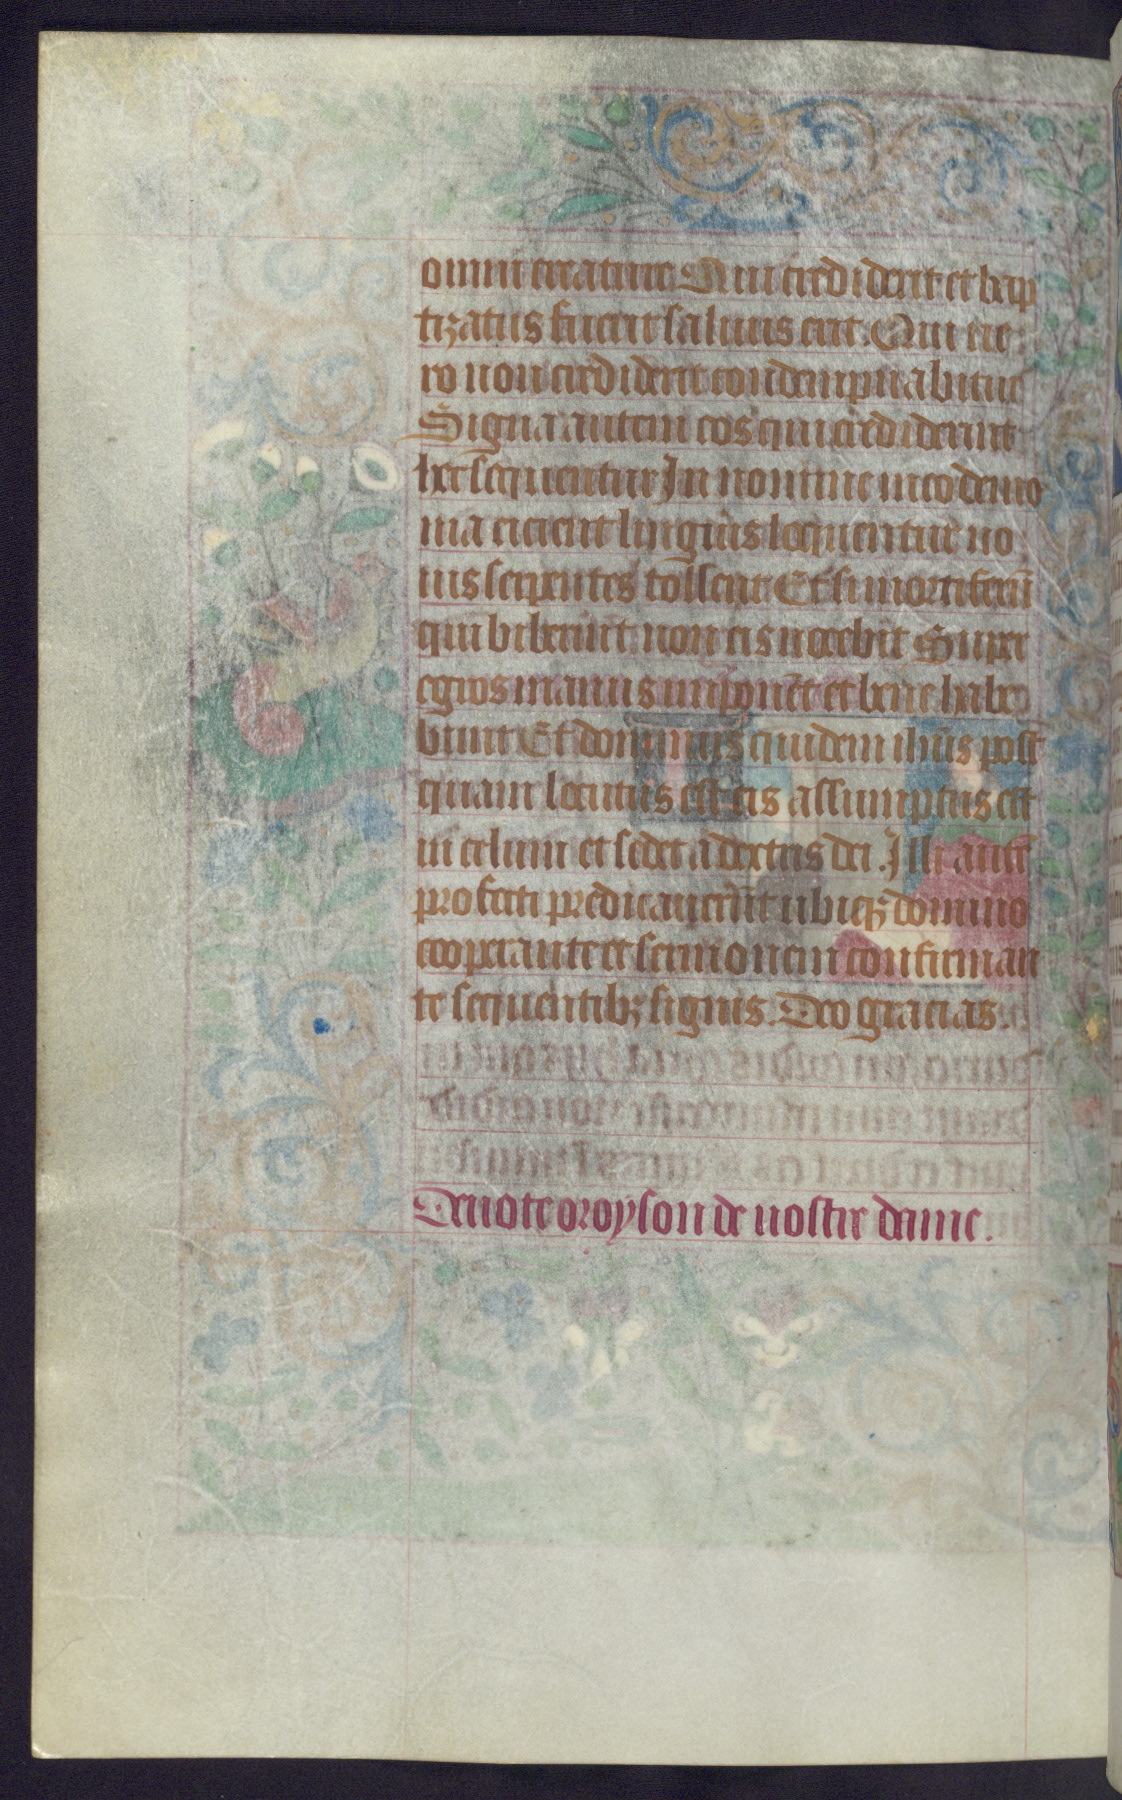 omni creature Qui crediderit et bap
tizatus fuerit saluus erit. Qui ue
ro non crediderit condempnabitur
Signa autem eos qui crediderint
hec sequentur In nomine meo demo
nia eicient linguis loquentur no
uis serpentes tollent Et si mortiferũ
quid biberint non eis nocebit Super
egros manus inponẽt et bene habe
bunt Et dominus quidem ihũs post
quam locutus est eis assumptus est
in celum et sedet a dextris dei. Illi autẽ
profecti predicauerũt ubiqȝ domino
cooperante et sermonem confirman
te sequentibȝ signis. Deo gracias.
Deuote oroyson de nostre dame.